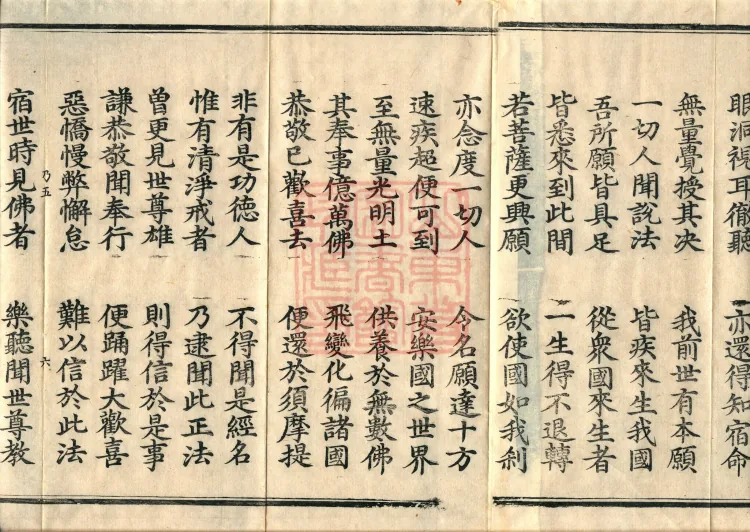 眼洞視耳徹聽　亦還得知宿命
無量覺授其决　我前世有本願
一切人聞說法　皆疾來生我國
吾所願皆具足　從衆國來生者
皆悉來到此間　一生得不退轉
若菩薩更興願　欲使國如我刹
亦念度一切人　令名願達十方
速疾超便可到　安樂國之世界
至無量光明土　供養於無數佛
其奉事億萬佛　飛變化徧諸國
恭敬已歡喜去　便還於須摩提
非有是功德人　不得聞是經名
惟有清淨戒者　乃逮聞此正法
曾更見世尊雄　則得信於是事
謙恭敬聞奉行　便踊躍大歡喜
惡憍慢弊懈怠　難以信於此法
乃五　六
宿世時見佛者　樂聽聞世尊教